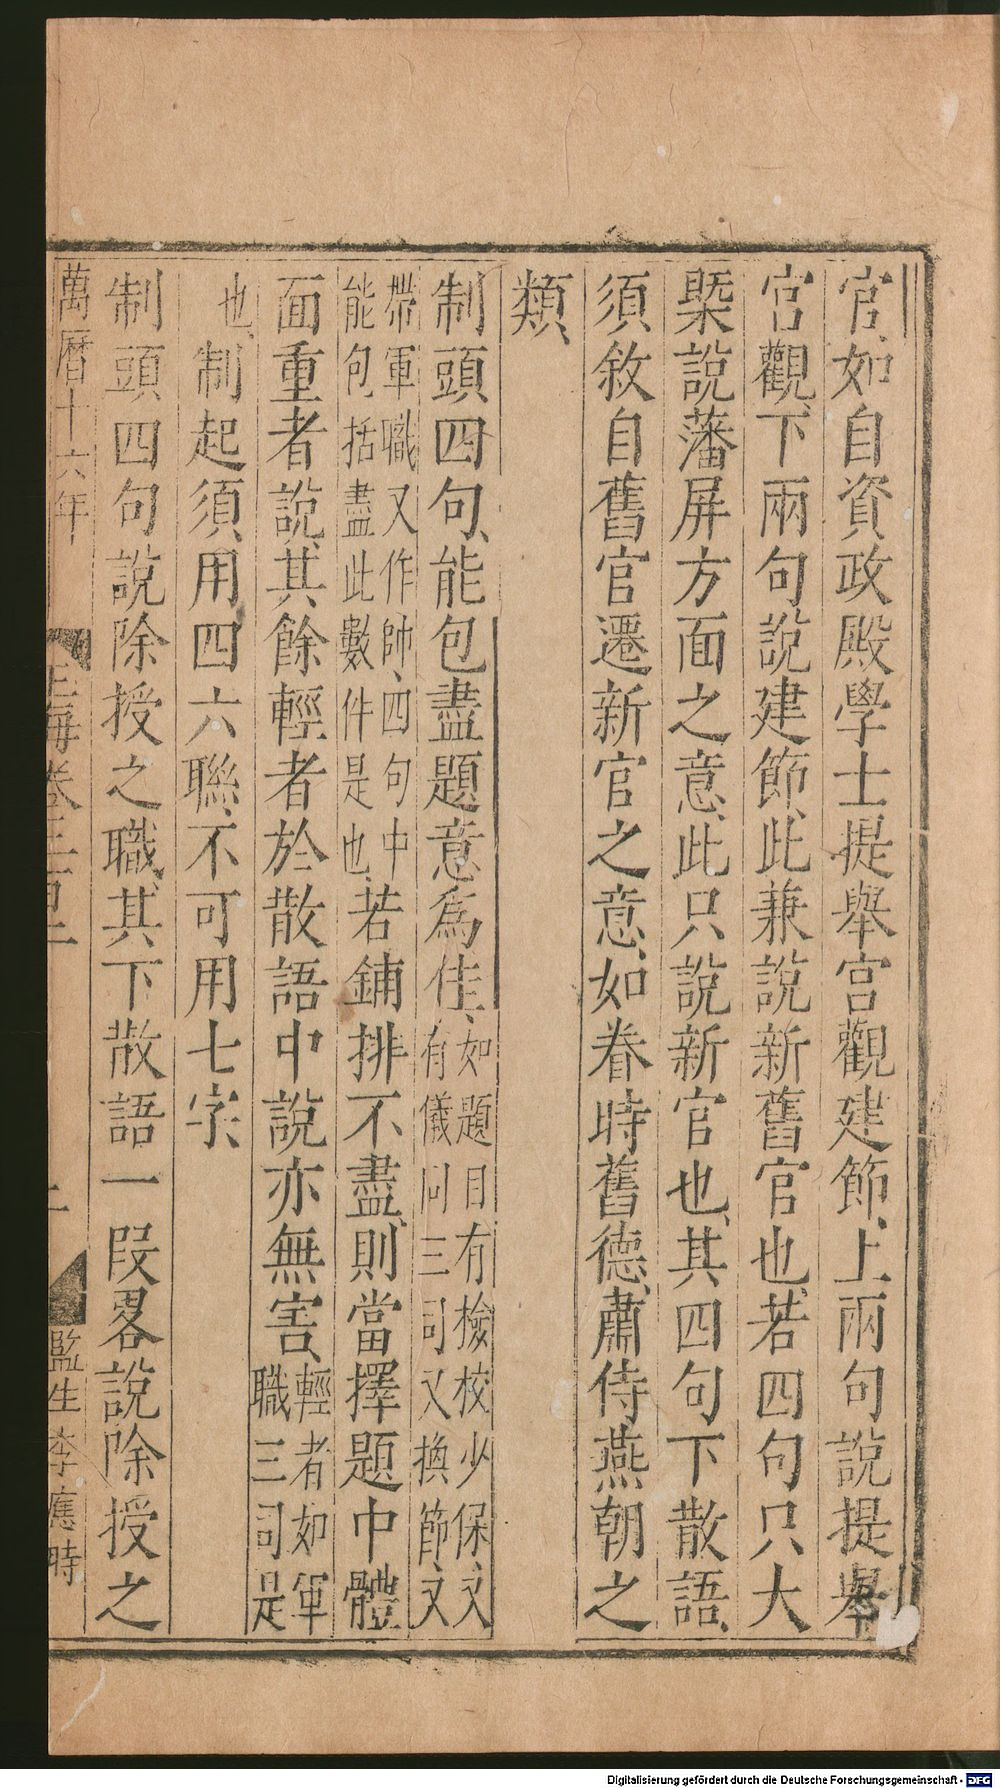 官、如自資政殿學士提舉宫觀建節、上兩句說提舉
宫觀、下兩句說建節、此兼說新舊官也、若四句只大
槩說藩屏方面之意、此只說新官也、其四句下散語、
須敘自舊官遷新官之意、如眷時舊德、肅侍燕朝之
類、
制頭四句、能包盡題意爲佳、如題目有檢校少保、又
有儀同三司又換節、又
帶軍職又作帥、四句中
能包括盡此數件是也、若鋪排不盡、則當擇題中體
面重者說、其餘輕者於散語中說亦無害、輕者如軍
職三司是
也、制起須用四六聯、不可用七字、
制頭四句說除授之職、其下散語一段畧說除授之
萬曆十六年
玉海卷二百二
監生李應時
Digitalisierung gefördert durch die Deutsche Forschungsgemeinschaft - DFG